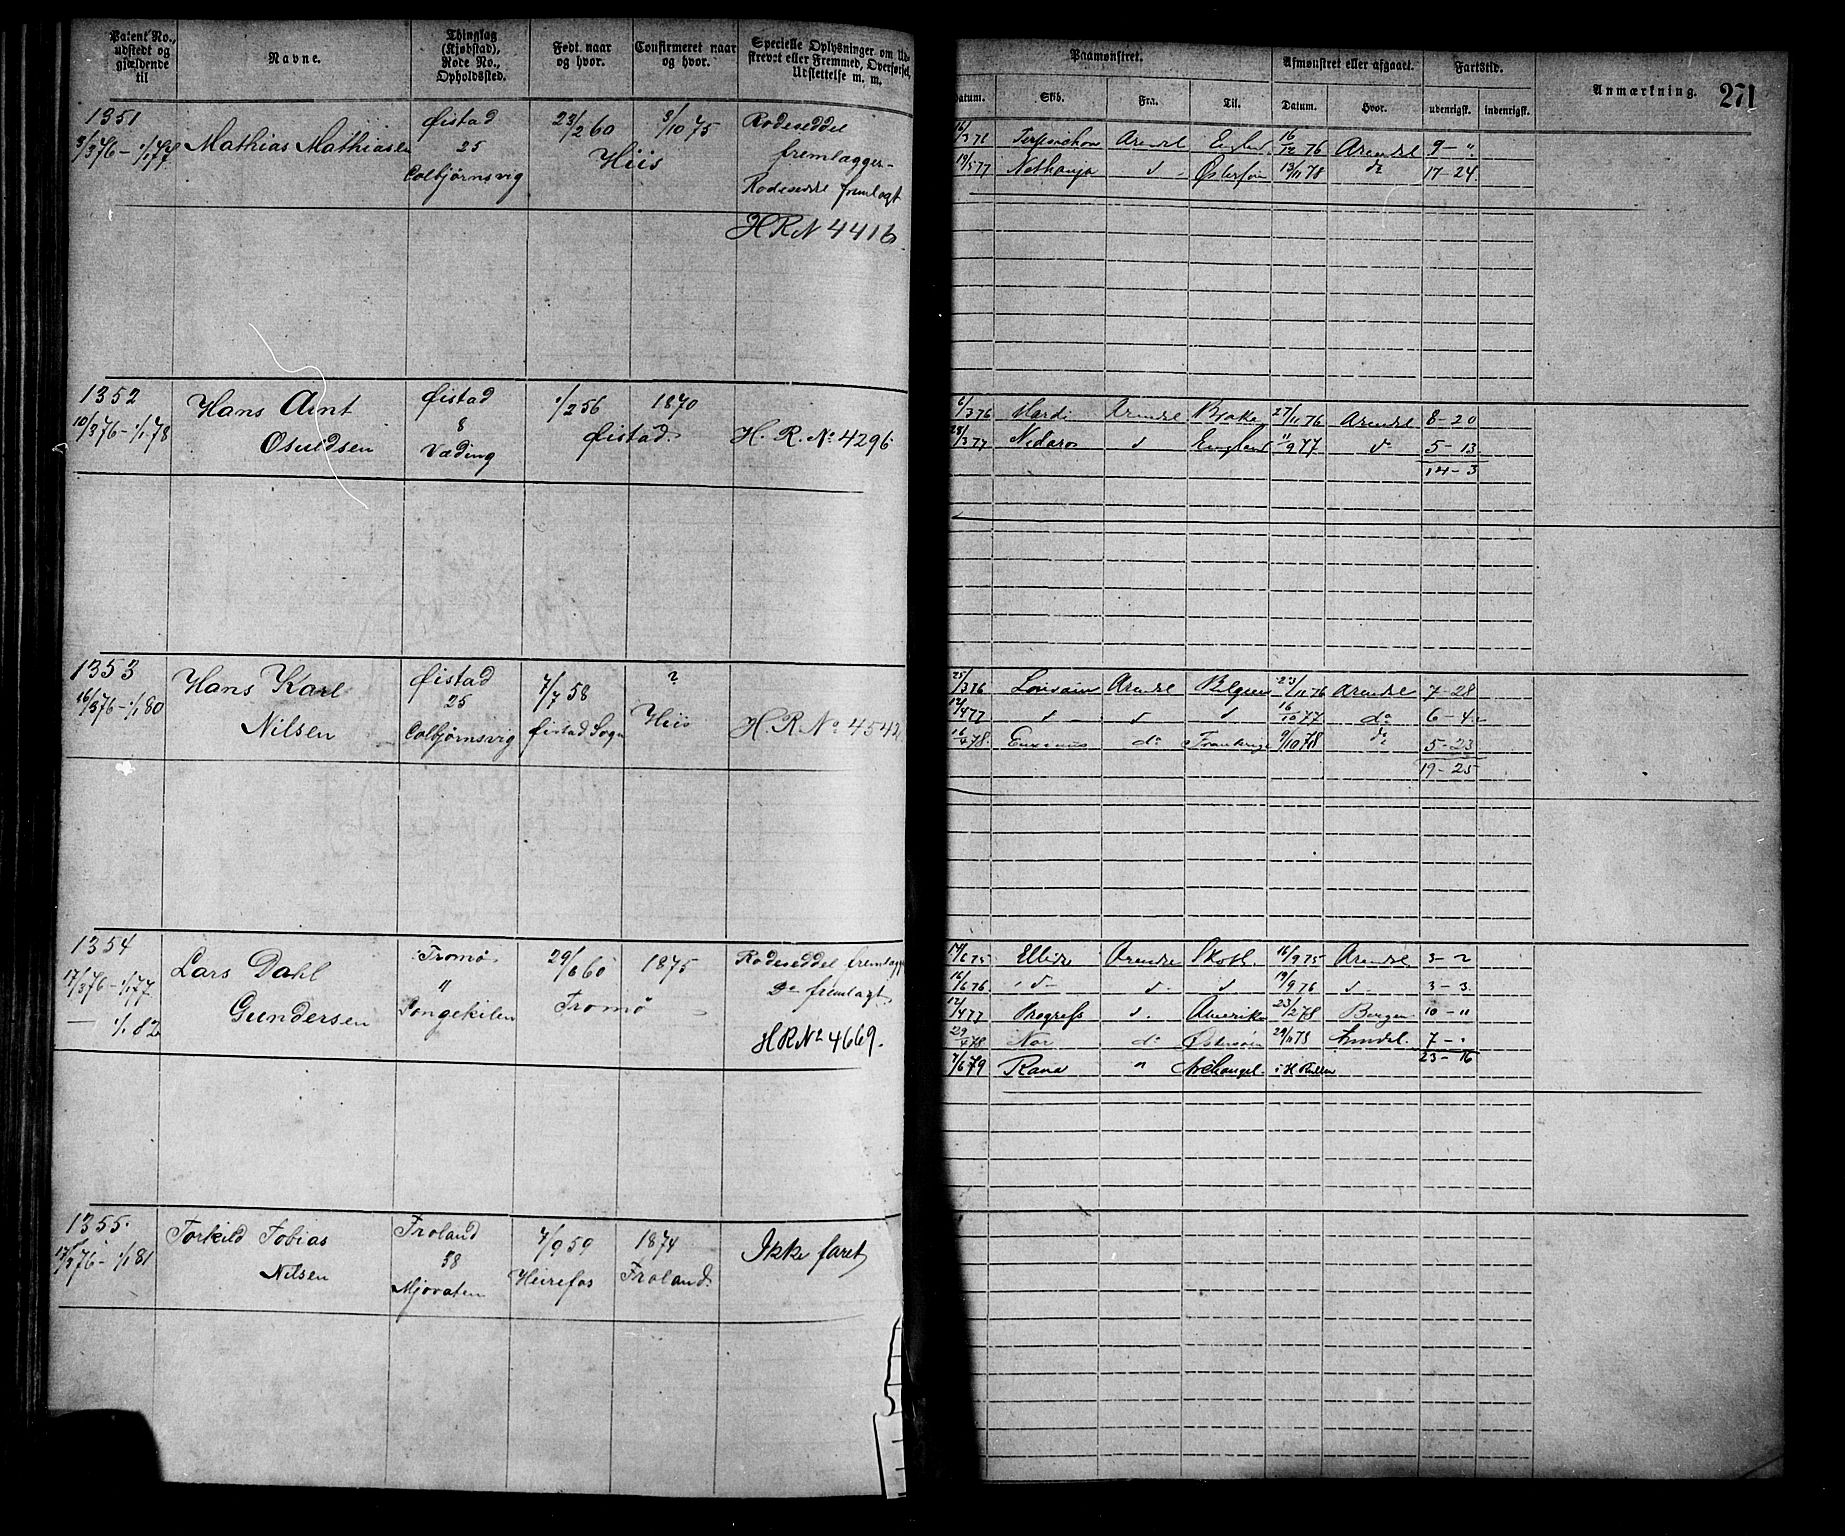 Patent No., udstedt og gjældende til
Navne.
Thinglag (Kjøbstad), Rode No., Opholdssted.
Født naar og hvor.
Confirmeret naar og hvor.
Specielle Oplysninger om Udskrevet eller Fremmed, Overførsel, Udslettelse m. m.
Paamønstret.
Afmønstret eller afgaaet.
Fartstid.
Anmærkning.
271
Datum.
Skib.
Fra.
Til.
Datum.
Hvor.
udenrigsk.
indenrigsk.
1351
Mathias Mathiasen
Øistad
25
Colbjørnsvig
23/2 60
3/10 75
Hiis
Rodeseddel
fremlægges
Rodeseddel fremlagt
HRN 4416
Arendal
16/12 76 Arendal 9 - "
19/3 77 Nathanja d - Østersøen 13/11 78 do 17 - 24
1352
10/3 76 - 1/1 78
Hans Aint
Osuldsen
Øistad
8
Væding
1/2 56
1870
Øistad
H. R. No 4296
6/3 76 Hardi Arendal Brake 27/11 76 Arendal 8 - 20
28/3 77 Nidaros d England 11/9 77 do 5 - 13
14 - 3
1353
16/3 76 - 1/1 80
Hans Karl
Nilsen
Øistad
25
Colbjørnsvig
7/7 58
Øistad Sogn
?
Hiis
H. R. No 4542
25/3 76 Louvain Arendal Belgien 23/11 76 Arendal 7 - 28
14/4 77 d d d 16/10 77 do 6 - 4
16/4 78 Euxinus do Frankrige 9/10 78 do 5 - 23
19 - 25
1354
17/3 76 - 1/1 77
- 1/1 82
Lars Dahl
Gundersen
Tromø
"
Songekilen
29/6 60
1875
Tromø
Rodeseddel fremlægges
Do fremlagt
HR No 4669.
17/6 75 Ellida Arendal Skotl. 16/9 75 Arendal 3 - 2
16/6 76 d d d 19/9 76 d. 3 - 3
12/4 77 Progress d. Amerika 23/2 78 Bergen 10 - "
29/4 78 Nor do Østersøen 29/11 78 Arendal 7 - "
23 - 16
7/6 79 Rana " Archangel. i H Rullen
1355
17/3 76 - 1/1 81
Torkild Tobias
Nilsen
Froland
38
Mjovaten
7/9 59
Heirefos
1874
Froland.
Ikke faret